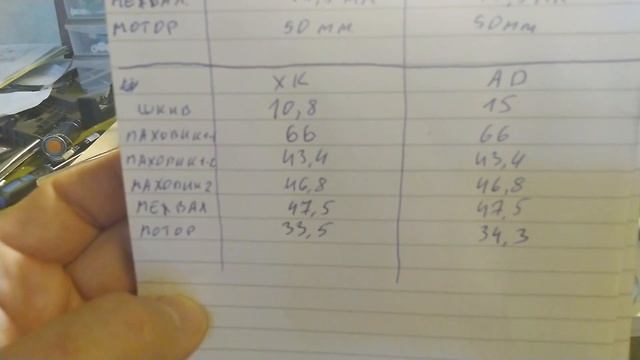 МЕХВАЛ
МОТОР 50 мм 50 мм
ХК AD
ШКИВ 10,8 15
МАХОВИК1-1 66 66
МАХОВИК1-2 43,4 43,4
МАХОВИК2 46,8 46,8
МЕХВАЛ 47,5 47,5
МОТОР 33,5 34,3